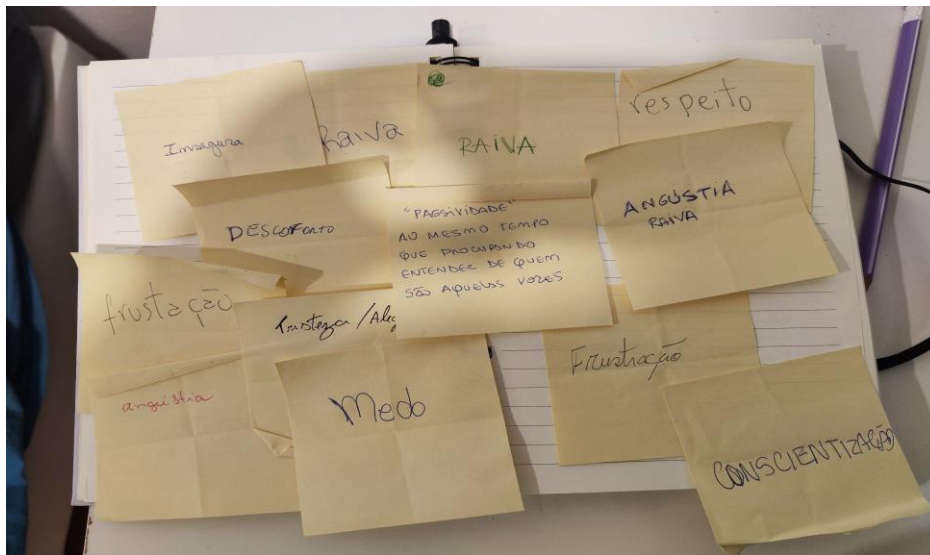 Insegura
Raiva
RAIVA
respeito
DESCOFORTO
"PASSIVIDADE"
AO MESMO TEMPO
QUE PROCURANDO
ENTENDER DE QUEM
SÃO AQUELAS VOZES
ANGÚSTIA
RAIVA
frustação
Tristeza / Aleg
Frustração
angústia
Medo
CONSCIENTIZAÇÃO